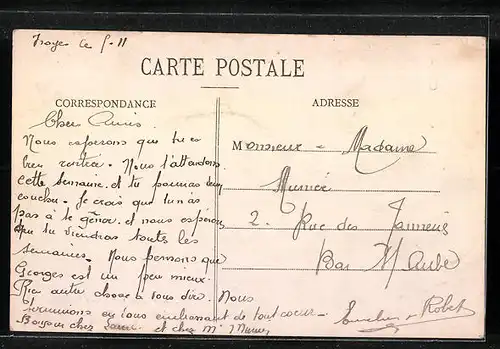 Troyes Ce 5-11
CARTE POSTALE
CORRESPONDANCE
ADRESSE
Chers Amis.
Nous esperons que tu es
bien rentrée. Nous t'attendons
cette semaine. et tu pourras bien
coucher. Je crois que tu n'as
pas à te gêner. et nous esperons
que tu viendras toutes les
semaines. Nous pensons que
Georges est un peu mieux.
Rien autre chose à vous dire. Nous
terminons en vous embrassant de tout coeur -
Bonjour chez et chez Mr
Robert
Monsieur - Madame
2. Rue des
Bar s/ Aube